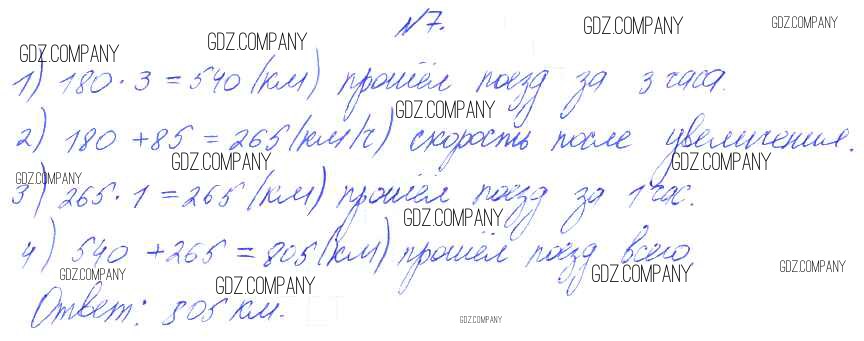 №7.
GDZ.COMPANY GDZ.COMPANY GDZ.COMPANY GDZ.COMPANY
1) 180 · 3 = 540 (км) прошёл поезд за 3 часа.
GDZ.COMPANY
2) 180 + 85 = 265 (км/ч) скорость после увеличения.
GDZ.COMPANY GDZ.COMPANY GDZ.COMPANY
3) 265 · 1 = 265 (км) прошёл поезд за 1 час.
GDZ.COMPANY
4) 540 + 265 = 805 (км) прошёл поезд всего.
GDZ.COMPANY GDZ.COMPANY GDZ.COMPANY GDZ.COMPANY
Ответ: 805 км.
GDZ.COMPANY